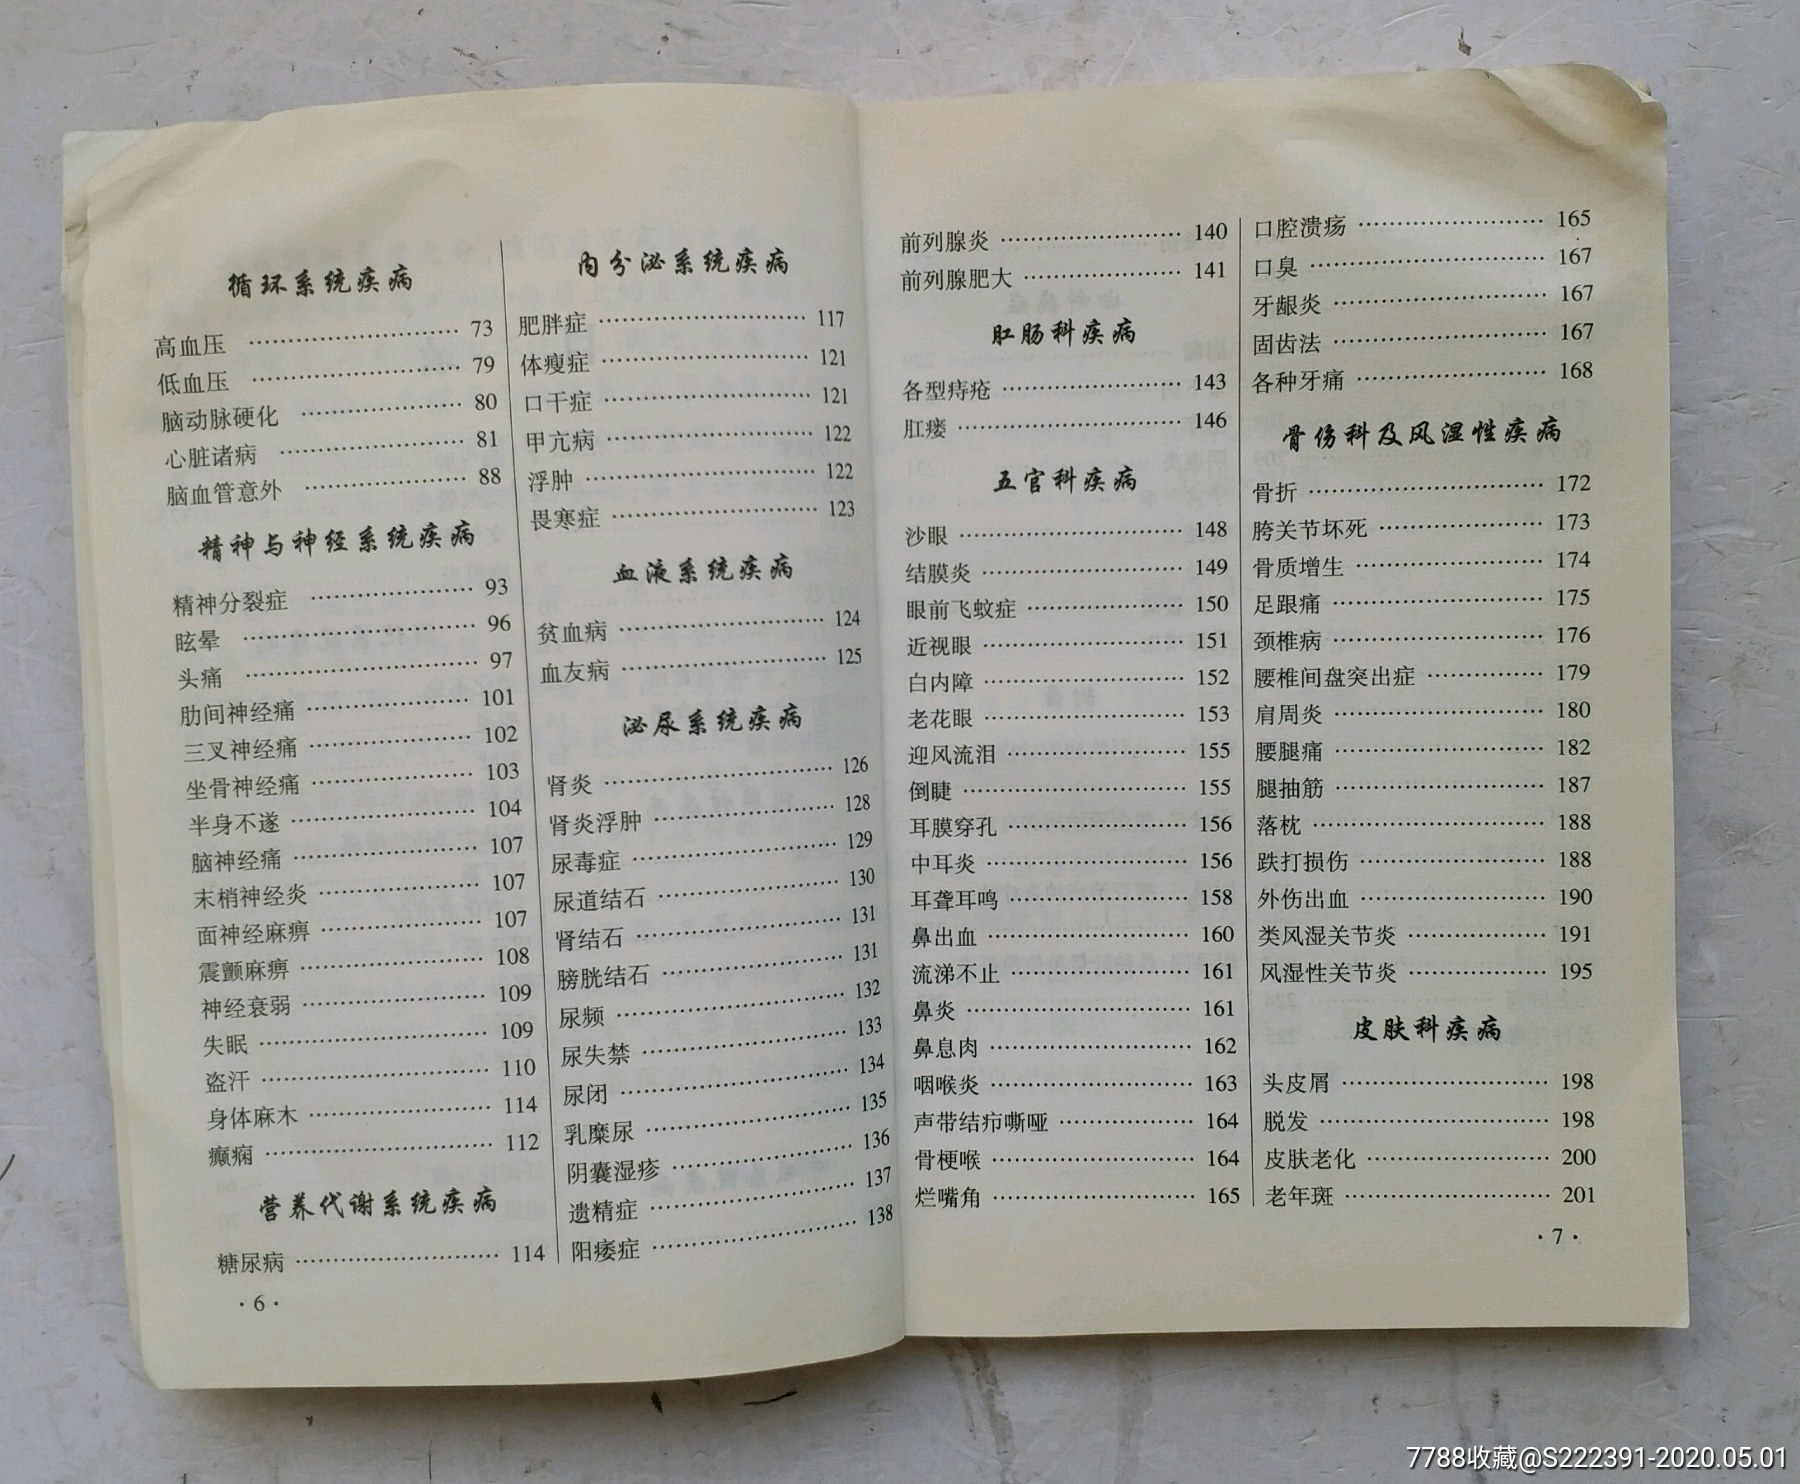 循环系统疾病
高血压 …………………… 73
低血压 …………………… 79
脑动脉硬化 ……………… 80
心脏诸病 ………………… 81
脑血管意外 ……………… 88
精神与神经系统疾病
精神分裂症 ……………… 93
眩晕 ……………………… 96
头痛 ……………………… 97
肋间神经痛 ……………… 101
三叉神经痛 ……………… 102
坐骨神经痛 ……………… 103
半身不遂 ………………… 104
脑神经痛 ………………… 107
末梢神经炎 ……………… 107
面神经麻痹 ……………… 107
震颤麻痹 ………………… 108
神经衰弱 ………………… 109
失眠 ……………………… 109
盗汗 ……………………… 110
身体麻木 ………………… 114
癫痫 ……………………… 112
营养代谢系统疾病
糖尿病 …………………… 114
内分泌系统疾病
肥胖症 …………………… 117
体瘦症 …………………… 121
口干症 …………………… 121
甲亢病 …………………… 122
浮肿 ……………………… 122
畏寒症 …………………… 123
血液系统疾病
贫血病 …………………… 124
血友病 …………………… 125
泌尿系统疾病
肾炎 ……………………… 126
肾炎浮肿 ………………… 128
尿毒症 …………………… 129
尿道结石 ………………… 130
肾结石 …………………… 131
膀胱结石 ………………… 131
尿频 ……………………… 132
尿失禁 …………………… 133
尿闭 ……………………… 134
乳糜尿 …………………… 135
阴囊湿疹 ………………… 136
遗精症 …………………… 137
阳痿症 …………………… 138
·6·
前列腺炎 ………………… 140
前列腺肥大 ……………… 141
肛肠科疾病
各型痔疮 ………………… 143
肛瘘 ……………………… 146
五官科疾病
沙眼 ……………………… 148
结膜炎 …………………… 149
眼前飞蚊症 ……………… 150
近视眼 …………………… 151
白内障 …………………… 152
老花眼 …………………… 153
迎风流泪 ………………… 155
倒睫 ……………………… 155
耳膜穿孔 ………………… 156
中耳炎 …………………… 156
耳聋耳鸣 ………………… 158
鼻出血 …………………… 160
流涕不止 ………………… 161
鼻炎 ……………………… 161
鼻息肉 …………………… 162
咽喉炎 …………………… 163
声带结疖嘶哑 …………… 164
骨梗喉 …………………… 164
烂嘴角 …………………… 165
口腔溃疡 ………………… 165
口臭 ……………………… 167
牙龈炎 …………………… 167
固齿法 …………………… 167
各种牙痛 ………………… 168
骨伤科及风湿性疾病
骨折 ……………………… 172
胯关节坏死 ……………… 173
骨质增生 ………………… 174
足跟痛 …………………… 175
颈椎病 …………………… 176
腰椎间盘突出症 ………… 179
肩周炎 …………………… 180
腰腿痛 …………………… 182
腿抽筋 …………………… 187
落枕 ……………………… 188
跌打损伤 ………………… 188
外伤出血 ………………… 190
类风湿关节炎 …………… 191
风湿性关节炎 …………… 195
皮肤科疾病
头皮屑 …………………… 198
脱发 ……………………… 198
皮肤老化 ………………… 200
老年斑 …………………… 201
·7·
7788收藏@S222391-2020.05.01